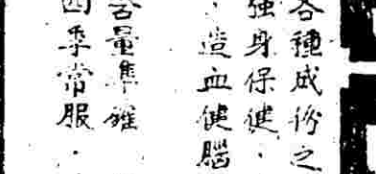 各種成份之
強身保健．
．造血健腦
含量準確
四季常服．